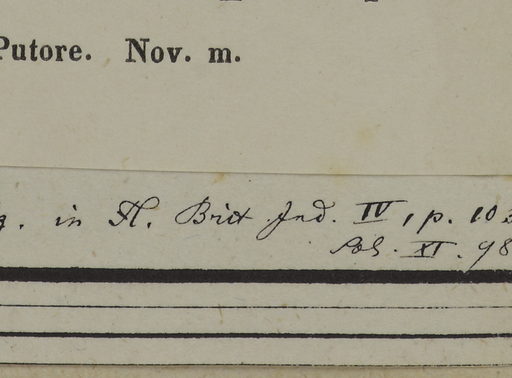 Putore. Nov. m.
. in Fl. Britt Ind. IV, p. 103
XI. 98